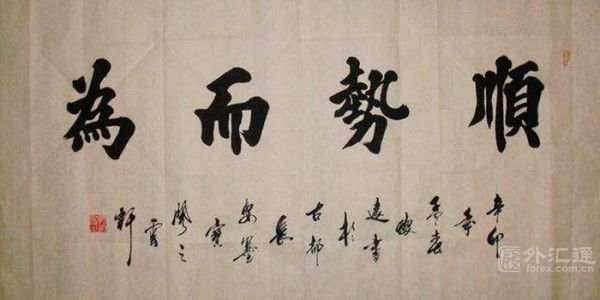 順勢而為
辛卯年春遠書於古都長安墨寶之軒
外汇通
forex.com.cn